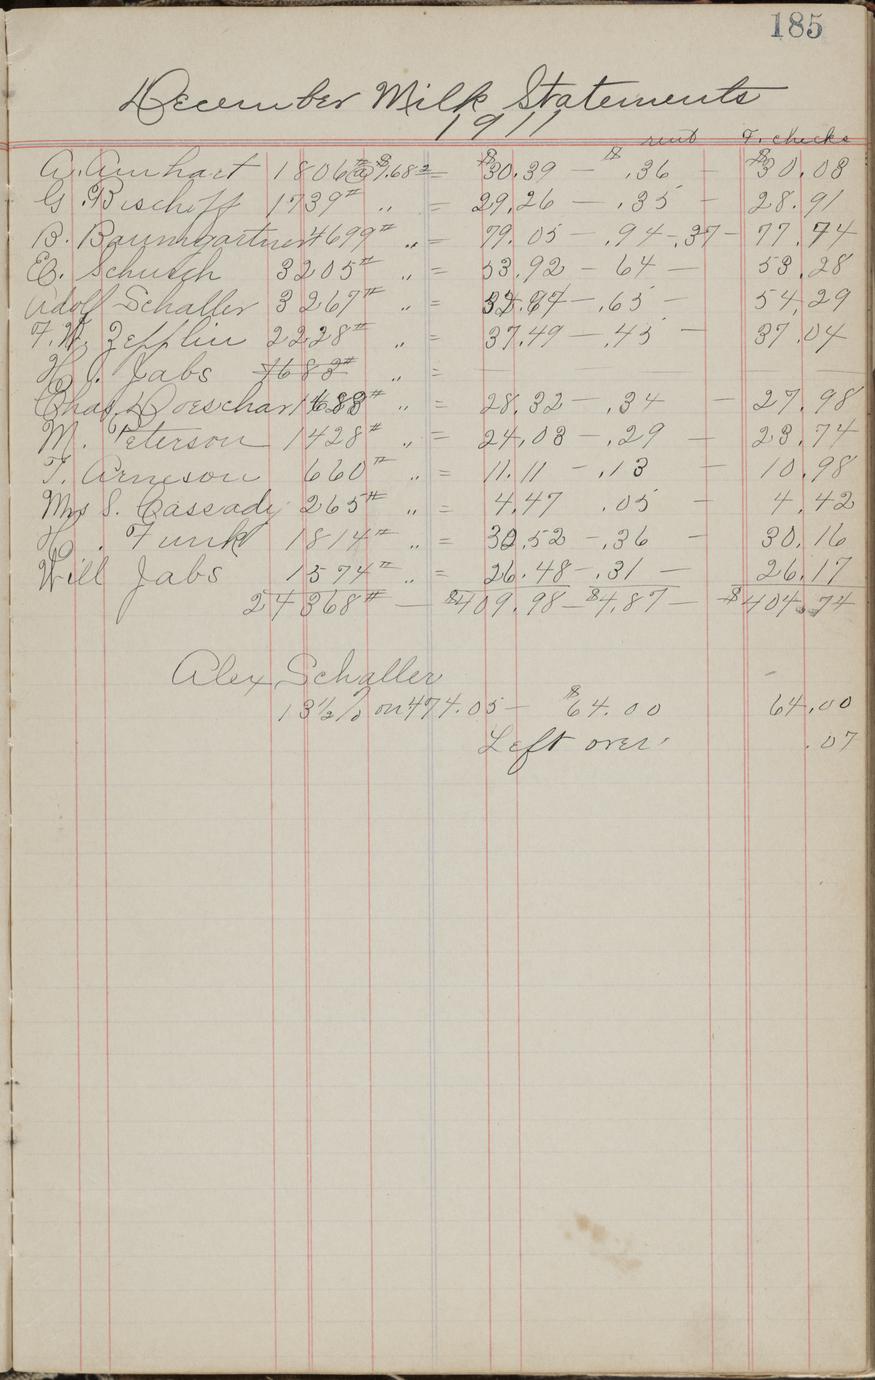 185
December Milk Statements
1911
rent F. checks
A. Arnhart 1806# @ $1.682 = $30.39 — $ .36 — $30.03
G. Bischoff 1739# " = 29.26 — .35 — 28.91
B. Baumgartner 4699# " = 79.05 — .94 - .37 - 77.74
E. Schusch 3205# " = 53.92 — 64 — 53.28
Adolf Schaller 3267# " = — .65 — 54.29
F. W. Zepplin 2228# " = 37.49 — .45 — 37.04
H. Jabs 1683# " = —
Chas. Doeschar 1683# " = 28.32 — .34 — 27.98
M. Peterson 1428# " = 24.03 — .29 — 23.74
T. Arneson 660# " = 11.11 — .13 — 10.98
Mrs S. Cassady 265# " = 4.47 .05 — 4.42
H. Funk 1814# " = 30.52 — .36 — 30.16
Will Jabs 1574# " = 26.48 — .31 — 26.17
24368# — $409.98 — $4.87 — $404.74
Alex Schaller
13½% on 474.05 — $64.00 64.00
Left over .07